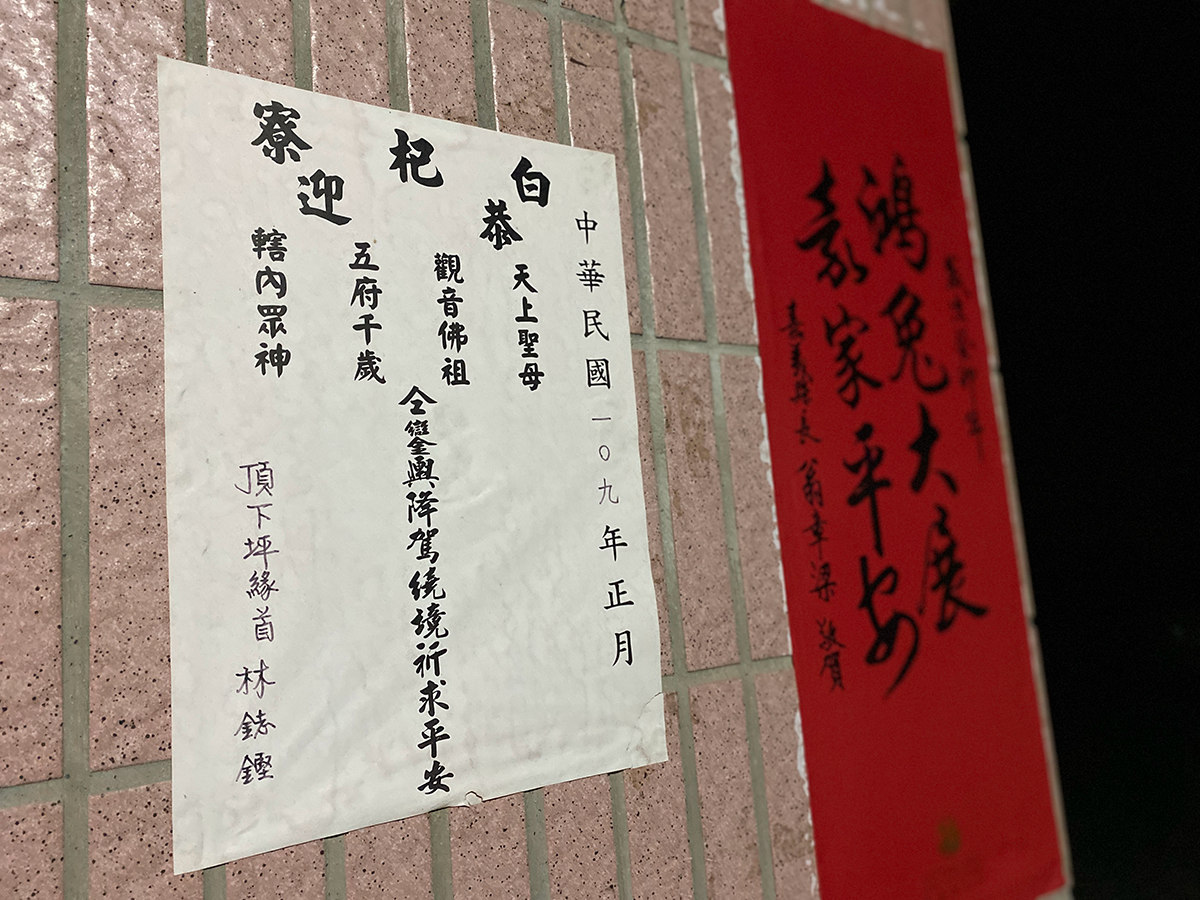 鴻兔大展
嘉家平安
嘉義縣長 翁章梁 敬賀
白杞寮
恭迎
中華民國一〇九年正月
天上聖母
觀音佛祖
五府千歲
轄內眾神
仝鑾輿降駕繞境祈求平安
頂下坪緣首 林鋕鏗